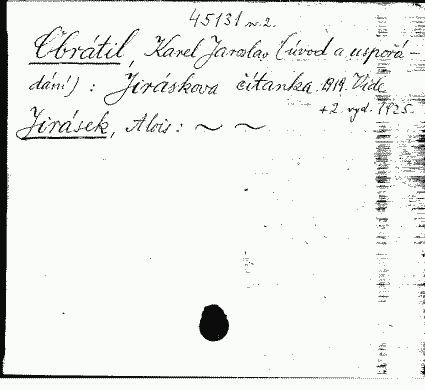 45131 n.2.
Obrátil, Karel Jaroslav (úvod a uspořá-
dání) : Jiráskova čítanka. 1919. Vide
+2. vyd. 1925
Jirásek, Alois: ~ ~